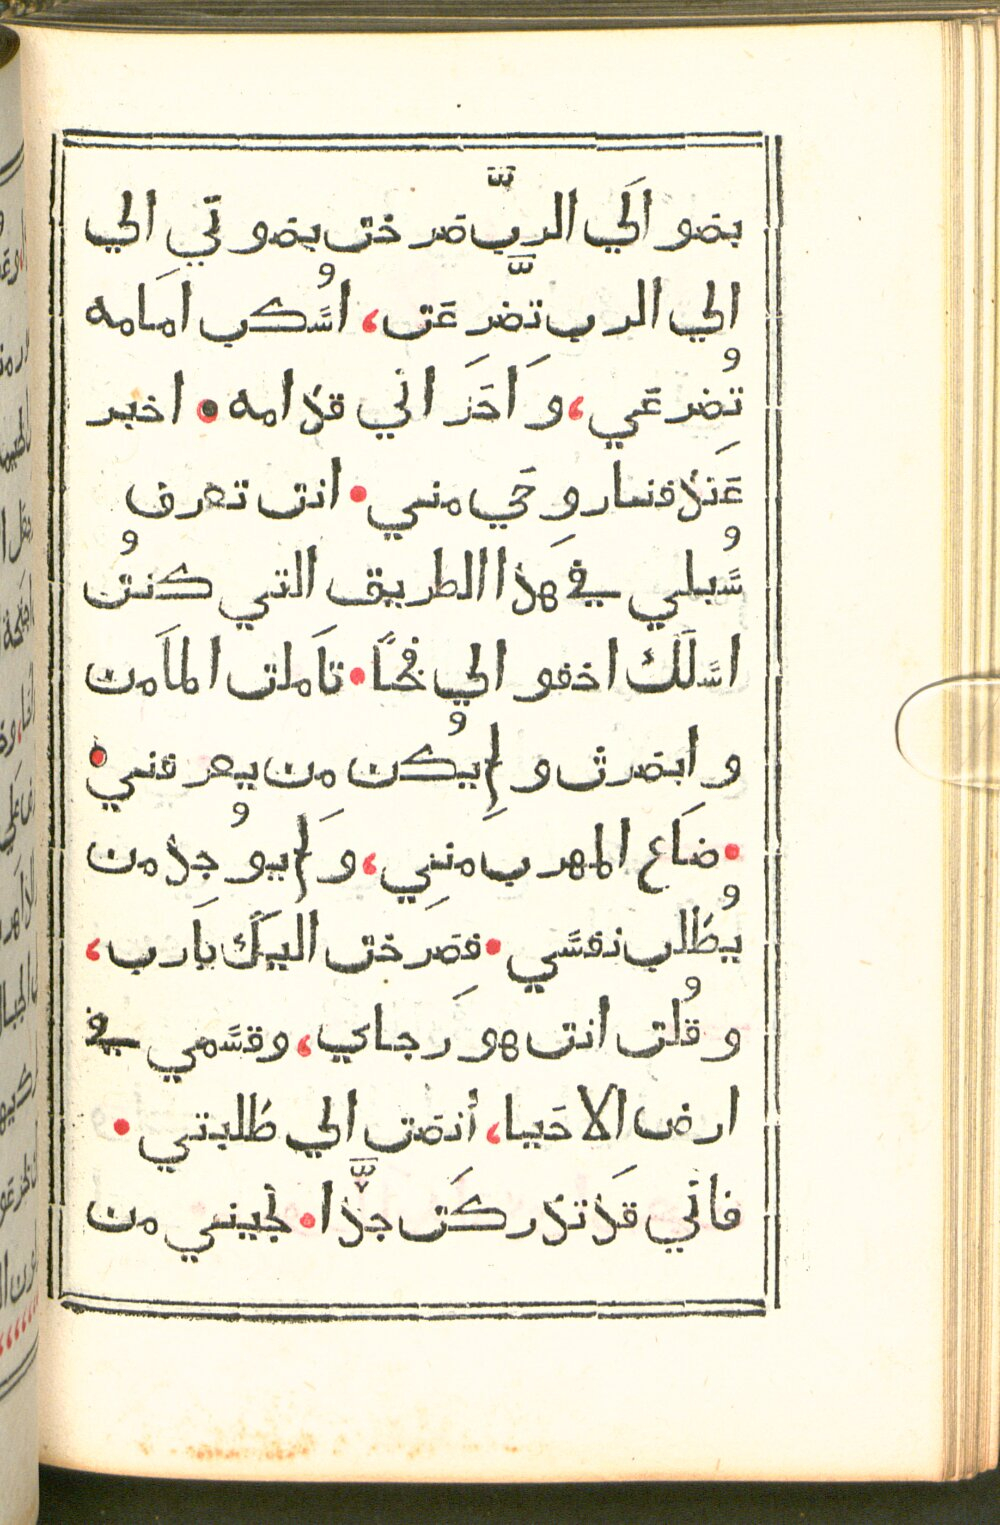 بصو الَي الربّ صرختُ بصوتي الي
الي الرب تضّرعَت، اسُكب اَمامه
تُضِرعَي، وَاَحَزَاني قدامه • اخبر
عَندَ فنا روِحَي مني • انت تعرف
سُبلي في هِذا الطريق التي كنتُ
اسَلَك اخفو الي فخًا • تاَملت الماَمن
وابصرت ولِم يُكن من يعرفني •
• ضاَع المهرب مَني، ولَم يوُجد من
يُطلب نفسَي • فصَرخت اليَكَ ياَرب،
وقُلت انت هو رَجاي، وقسَمي في
ارض الاحَيا، أنصَت اَلي طلبتي •
فاني قدَ تدركَت جدّا • نجيني من